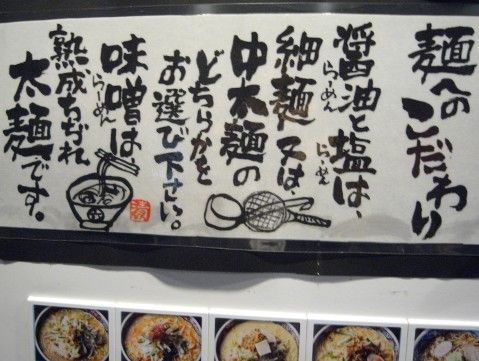 麺へのこだわり
醤油と塩は、
らーめん
らーめん
細麺又は、
中太麺の
どちらかを
お選び下さい。
味噌は、
らーめん
熟成ちぢれ
太麺です。